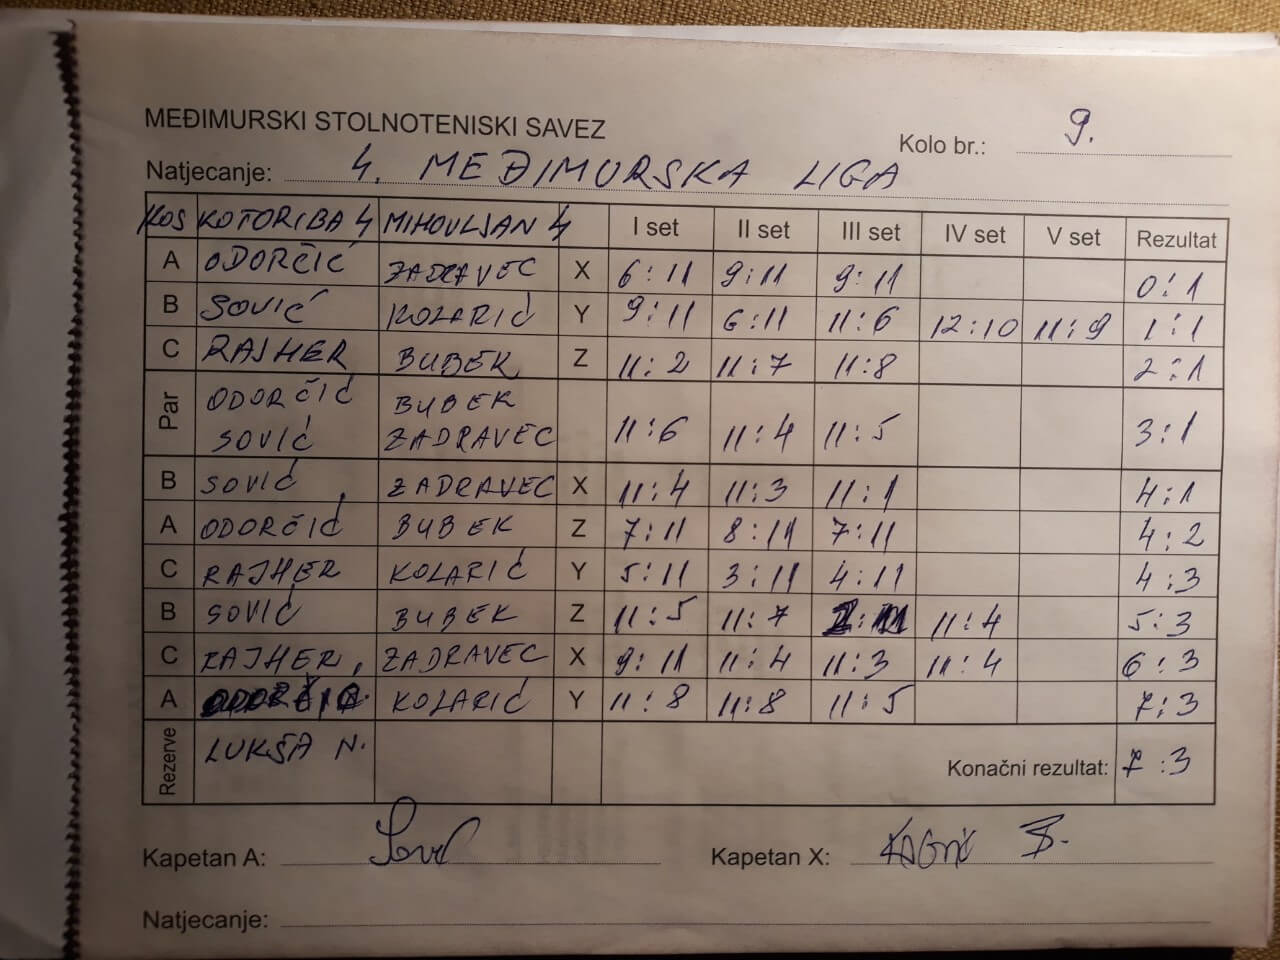 MEĐIMURSKI STOLNOTENISKI SAVEZ
Kolo br.: 9.
Natjecanje: 4. MEĐIMURSKA LIGA
KOTORIBA 4 MIHOVLJAN 4 I set II set III set IV set V set Rezultat
A ODORČIĆ ZADRAVEC X 6:11 9:11 9:11 0:1
B SOVIĆ KOLARIĆ Y 9:11 6:11 11:6 12:10 11:9 1:1
C RAJHER BUBEK Z 11:2 11:7 11:8 2:1
Par ODORČIĆ BUBEK
SOVIĆ ZADRAVEC 11:6 11:4 11:5 3:1
B SOVIĆ ZADRAVEC X 11:4 11:3 11:1 4:1
A ODORČIĆ BUBEK Z 7:11 8:11 7:11 4:2
C RAJHER KOLARIĆ Y 5:11 3:11 4:11 4:3
B SOVIĆ BUBEK Z 11:5 11:7 11:4 5:3
C RAJHER ZADRAVEC X 9:11 11:4 11:3 11:4 6:3
A KOLARIĆ Y 11:8 11:8 11:5 7:3
Rezerve LUKŠA N. Konačni rezultat: 7:3
Kapetan A: Kapetan X:
Natjecanje: